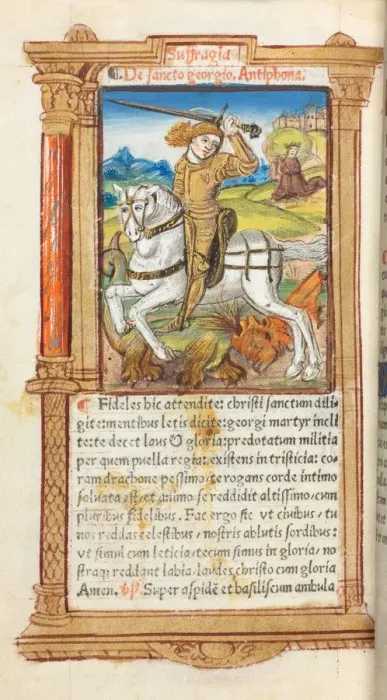 Suffragia
De sancto georgio. Antiphona.
Fideles hic attendite: christi sanctum dili
gite: mentibus letis dicite: georgi martyr incli
te: te decet laus & gloria: predotatum militia
per quem puella regia: existens in tristicia: co
ram drachone pessimo: te rogans corde intimo
saluata est, et animo se reddidit altissimo, cum
pluribus fidelibus. Fac ergo sic vt ciuibus: tu
nos reddas celestibus: nostris ablutis sordibus:
vt simul cum leticia: tecum simus in gloria: no
straq; reddant labia, laudes christo cum gloria
Amen. Super aspidē et basiliscum ambula